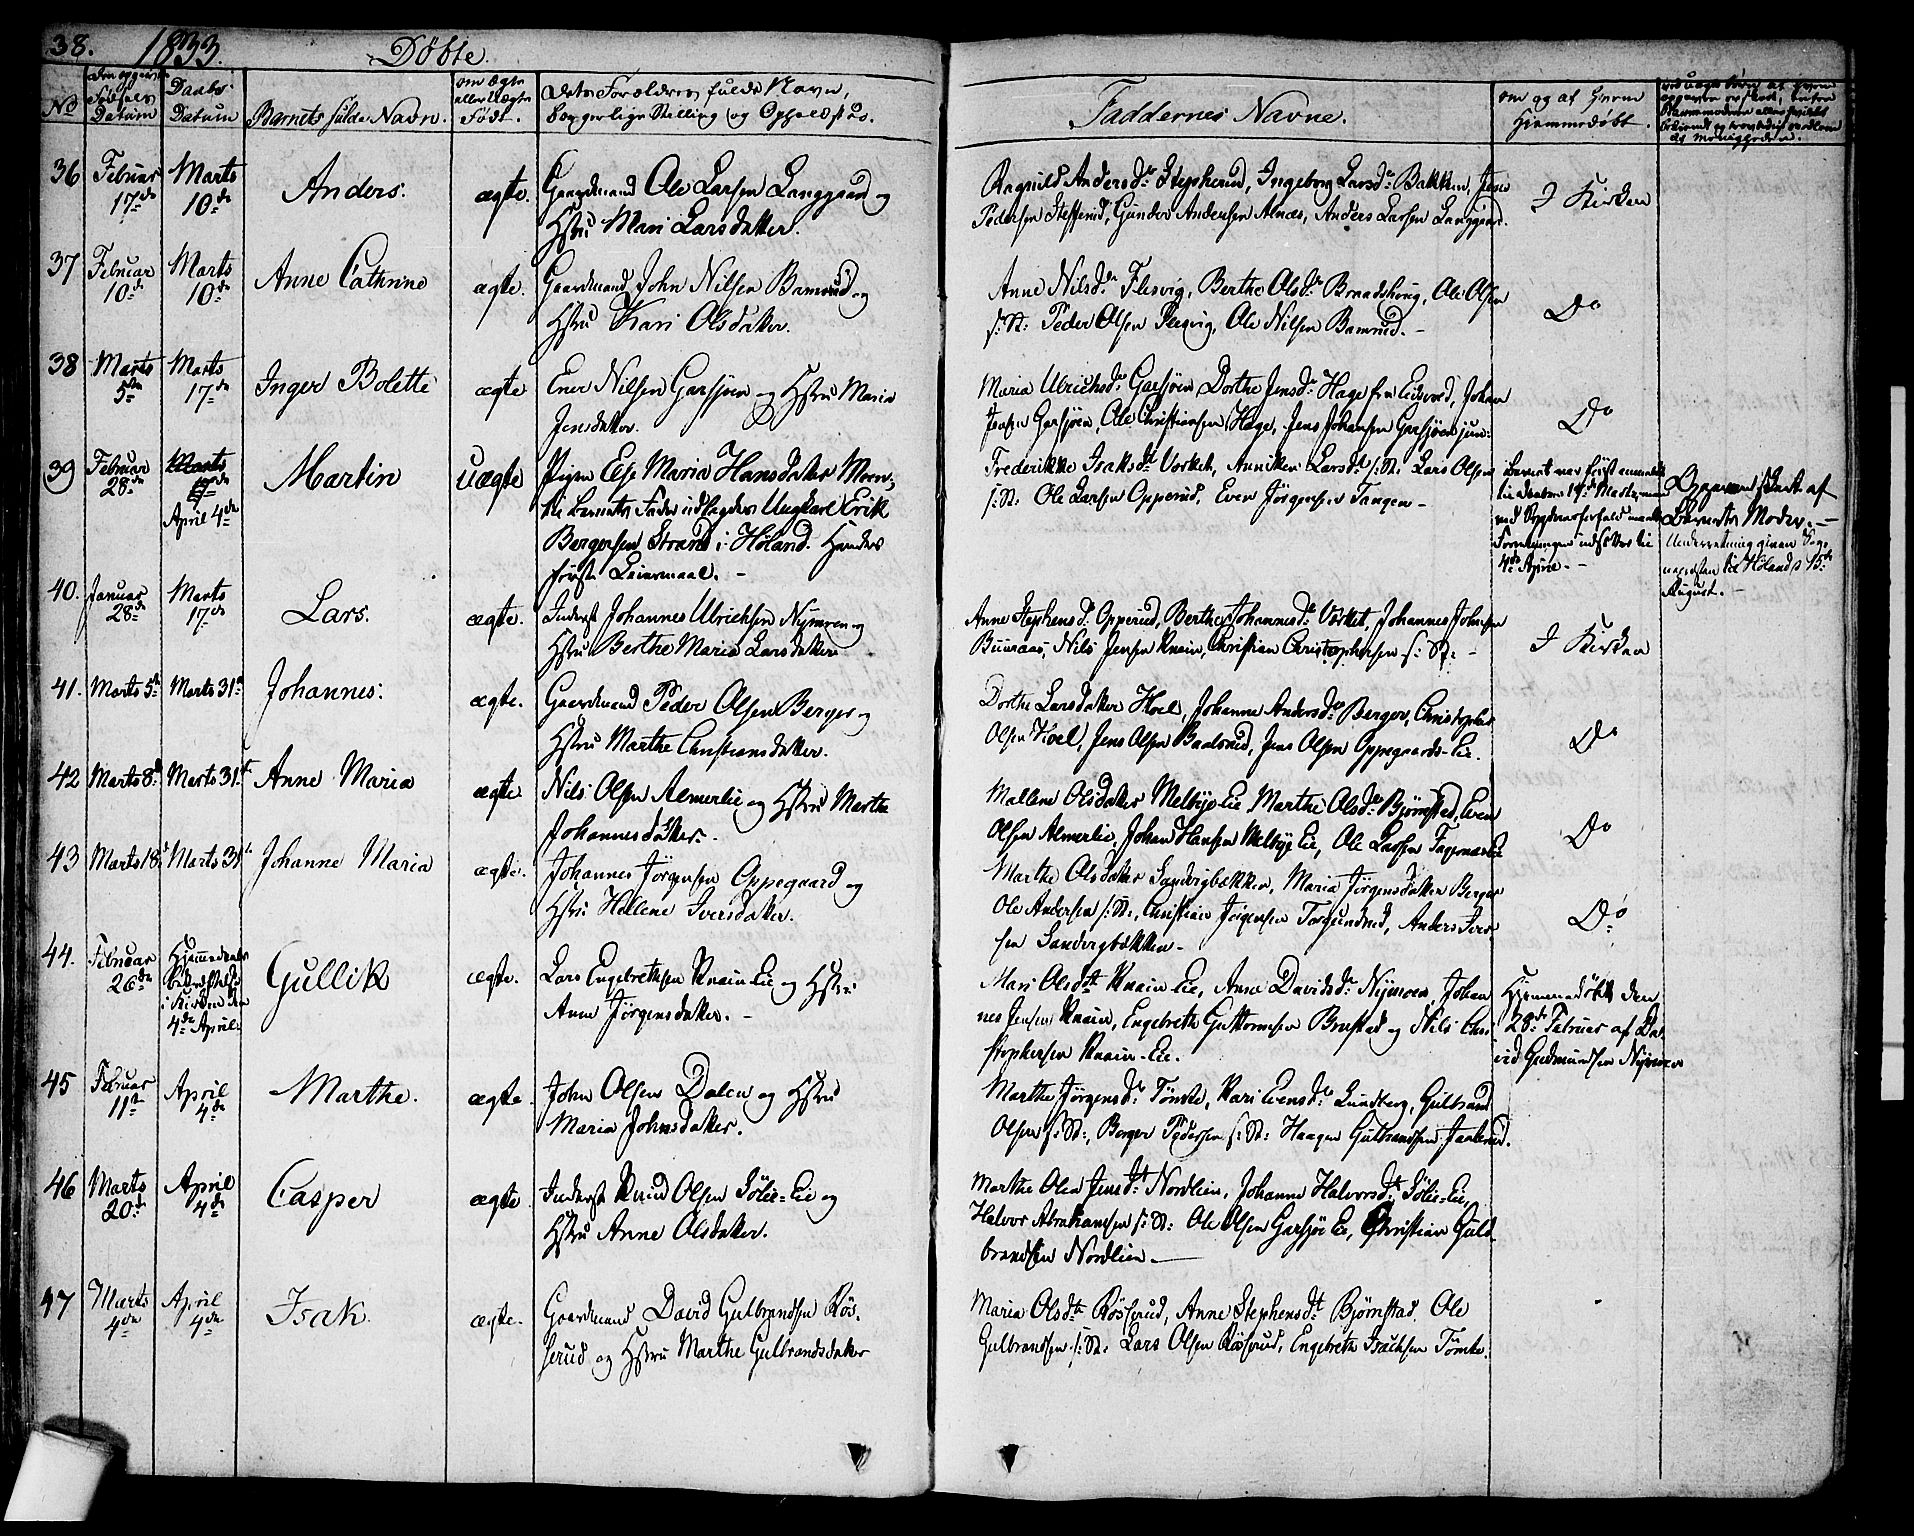 38. 1833. Döbte.
No
Födsels Datum
Daabs Datum
Barnets fulde Navn.
om Ægte eller Uægte Födt.
dets Forældres fulde Navne, borgerlige Stilling og Opholdsted.
Faddernes Navne.
om og af hvem Hjemmedöbt.
36 Februar 17de Marts 10de Anders. ægte. Gaardmand Ole Larsen Langgaard og
Hstru Mari Larsdatter.
Ragnild Andersdr Stepherud, Ingeborg Larsdr Bakken, Jens
Pedersen Stefferud, Gunder Andersen Alnæs, Anders Larsen Langgaard.
I Kirken
37 Februar 10de Marts 10de Anne Cathrine ægte. Gaardmand John Nilsen Bamrud og
Hstru Kari Olsdatter.
Anne Nilsdr Flesvig, Berthe Olsdr Brandshoug, Ole Olsen
s: St: Peder Olsen Flesvig, Ole Nilsen Bamrud. -
Do
38 Marts 5te Marts 17de Inger Bolette ægte Ener Nilsen Garsjöen og Hstru Maria
Jensdatter.
Maria Ulrichsdr Garsjöen, Dorthe Jensdr Hage fra Eidsvold, Johan
Jensen Garsjöen, Ole Christiansen Hage, Jens Johansen Garsjöen jun:
Do
39 Februar 28de Marts 17de April 4de Martin Uægte Pigen Else Maria Hansdatter Moen,
til Barnets Fader udlagdes Ungkarl Erik
Bergersen Strand i Höland. Hendes
förste Leiermaal. -
Frederikke Isaksdt Værket, Anniken Larsdt s: St: Lars Olsen
s: St: Ole Larsen Opperud, Even Jörgensen Tangen -
Barnet var först anmeldt
til Daaben 17de Marts, men
4de April. -
Opgivet af
Barnets Moder. -
Underretning given Sogne
præsten til Höland 15de
August. -
40. Januar 28de Marts 17de Lars. ægte. Inderst Johannes Ulrichsen Nymoen og
Hstru Berthe Maria Larsdatter
Anne Stephensd. Opperud, Berthe Johannesd. Værket, Johannes Johnsen
Buuraas, Nils Jensen Knain, Christian Christophersen s: St: -
I Kirken
41. Marts 5te Marts 31te Johannes. ægte. Gaardmand Peder Olsen Berger og
Hstru Marthe Christiansdatter.
Dorthe Larsdatter Hoel, Johanne Andersdr Berger, Christopher
Olsen Hoel, Jens Olsen Baalsrud, Jens Olsen Oppegaards-Eie.
Do
42 Marts 8de Marts 31te Anne Maria ægte Nils Olsen Almerlie og Hstru Marthe
Johannesdatter. -
Mallene Olsdatter Melbye Eie Marthe Olsdr Björnstad, Even
Olsen Almerlie, Johan Hansen Melbye Eie, Ole Larsen
Do
43 Marts 18de Marts 31te Johanne Maria ægte. Johannes Jörgensen Oppegaard og
Hstru Hellene Iversdatter.
Marthe Olsdatter Sandvigbækken, Maria Jörgensdatter Berger
Ole Andersen s: St:, Christian Jörgensen Torgundrud, Anders Iver-
sen Sandvigbækken -
Do
44. Februar 26de Hjemmedaaben bekræftelse i Kirken den 4de April. Gullik ægte. Lars Engebrethsen Knain-Eie og Hstru
Anne Jörgensdatter. -
Mari Olsdtr Knain Eie, Anne Davidsdr Nymoen, Johan
nes Jensen Knain, Engebreth Guttormsen Brustad og Nils Chri
stophersen Knain-Eie.
Hjemmedöbt den
28de Februar af Da-
vid Gudmundsen Nymoen
45 Februar 11te April 4de Marthe. ægte. John Olsen Dalen og Hstru
Maria Johnsdatter.
Marthe Jörgensdr Tömte, Kari Evensdr Lundberg, Gulbrand
Olsen s: St:, Berger Pedersen s: St: Haagen Gulbrandsen
46 Marts 20de April 4de Casper ægte Inderst Knud Olsen Sölie-Eie og
Hstru Anne Olsdatter.
Marthe Olea Jensdt Nordlien, Johanne Halvorsdt Sölie-Eie,
Halvor Abrahamsen s: St: Ole Olsen Garsjö Eie, Christian Guld-
brandsen Nordlien -
47 Marts 4de April 4de Isak. ægte. Gaardmand David Gulbrandsen Rös-
serud og Hstru Marthe Gulbrandsdatter
Maria Olsdtr Rösserud, Anne Stephensdt Björnstad, Ole
Gulbrandsen s: St: Lars Olsen Rösserud, Engebreth Isachsen Tömte.